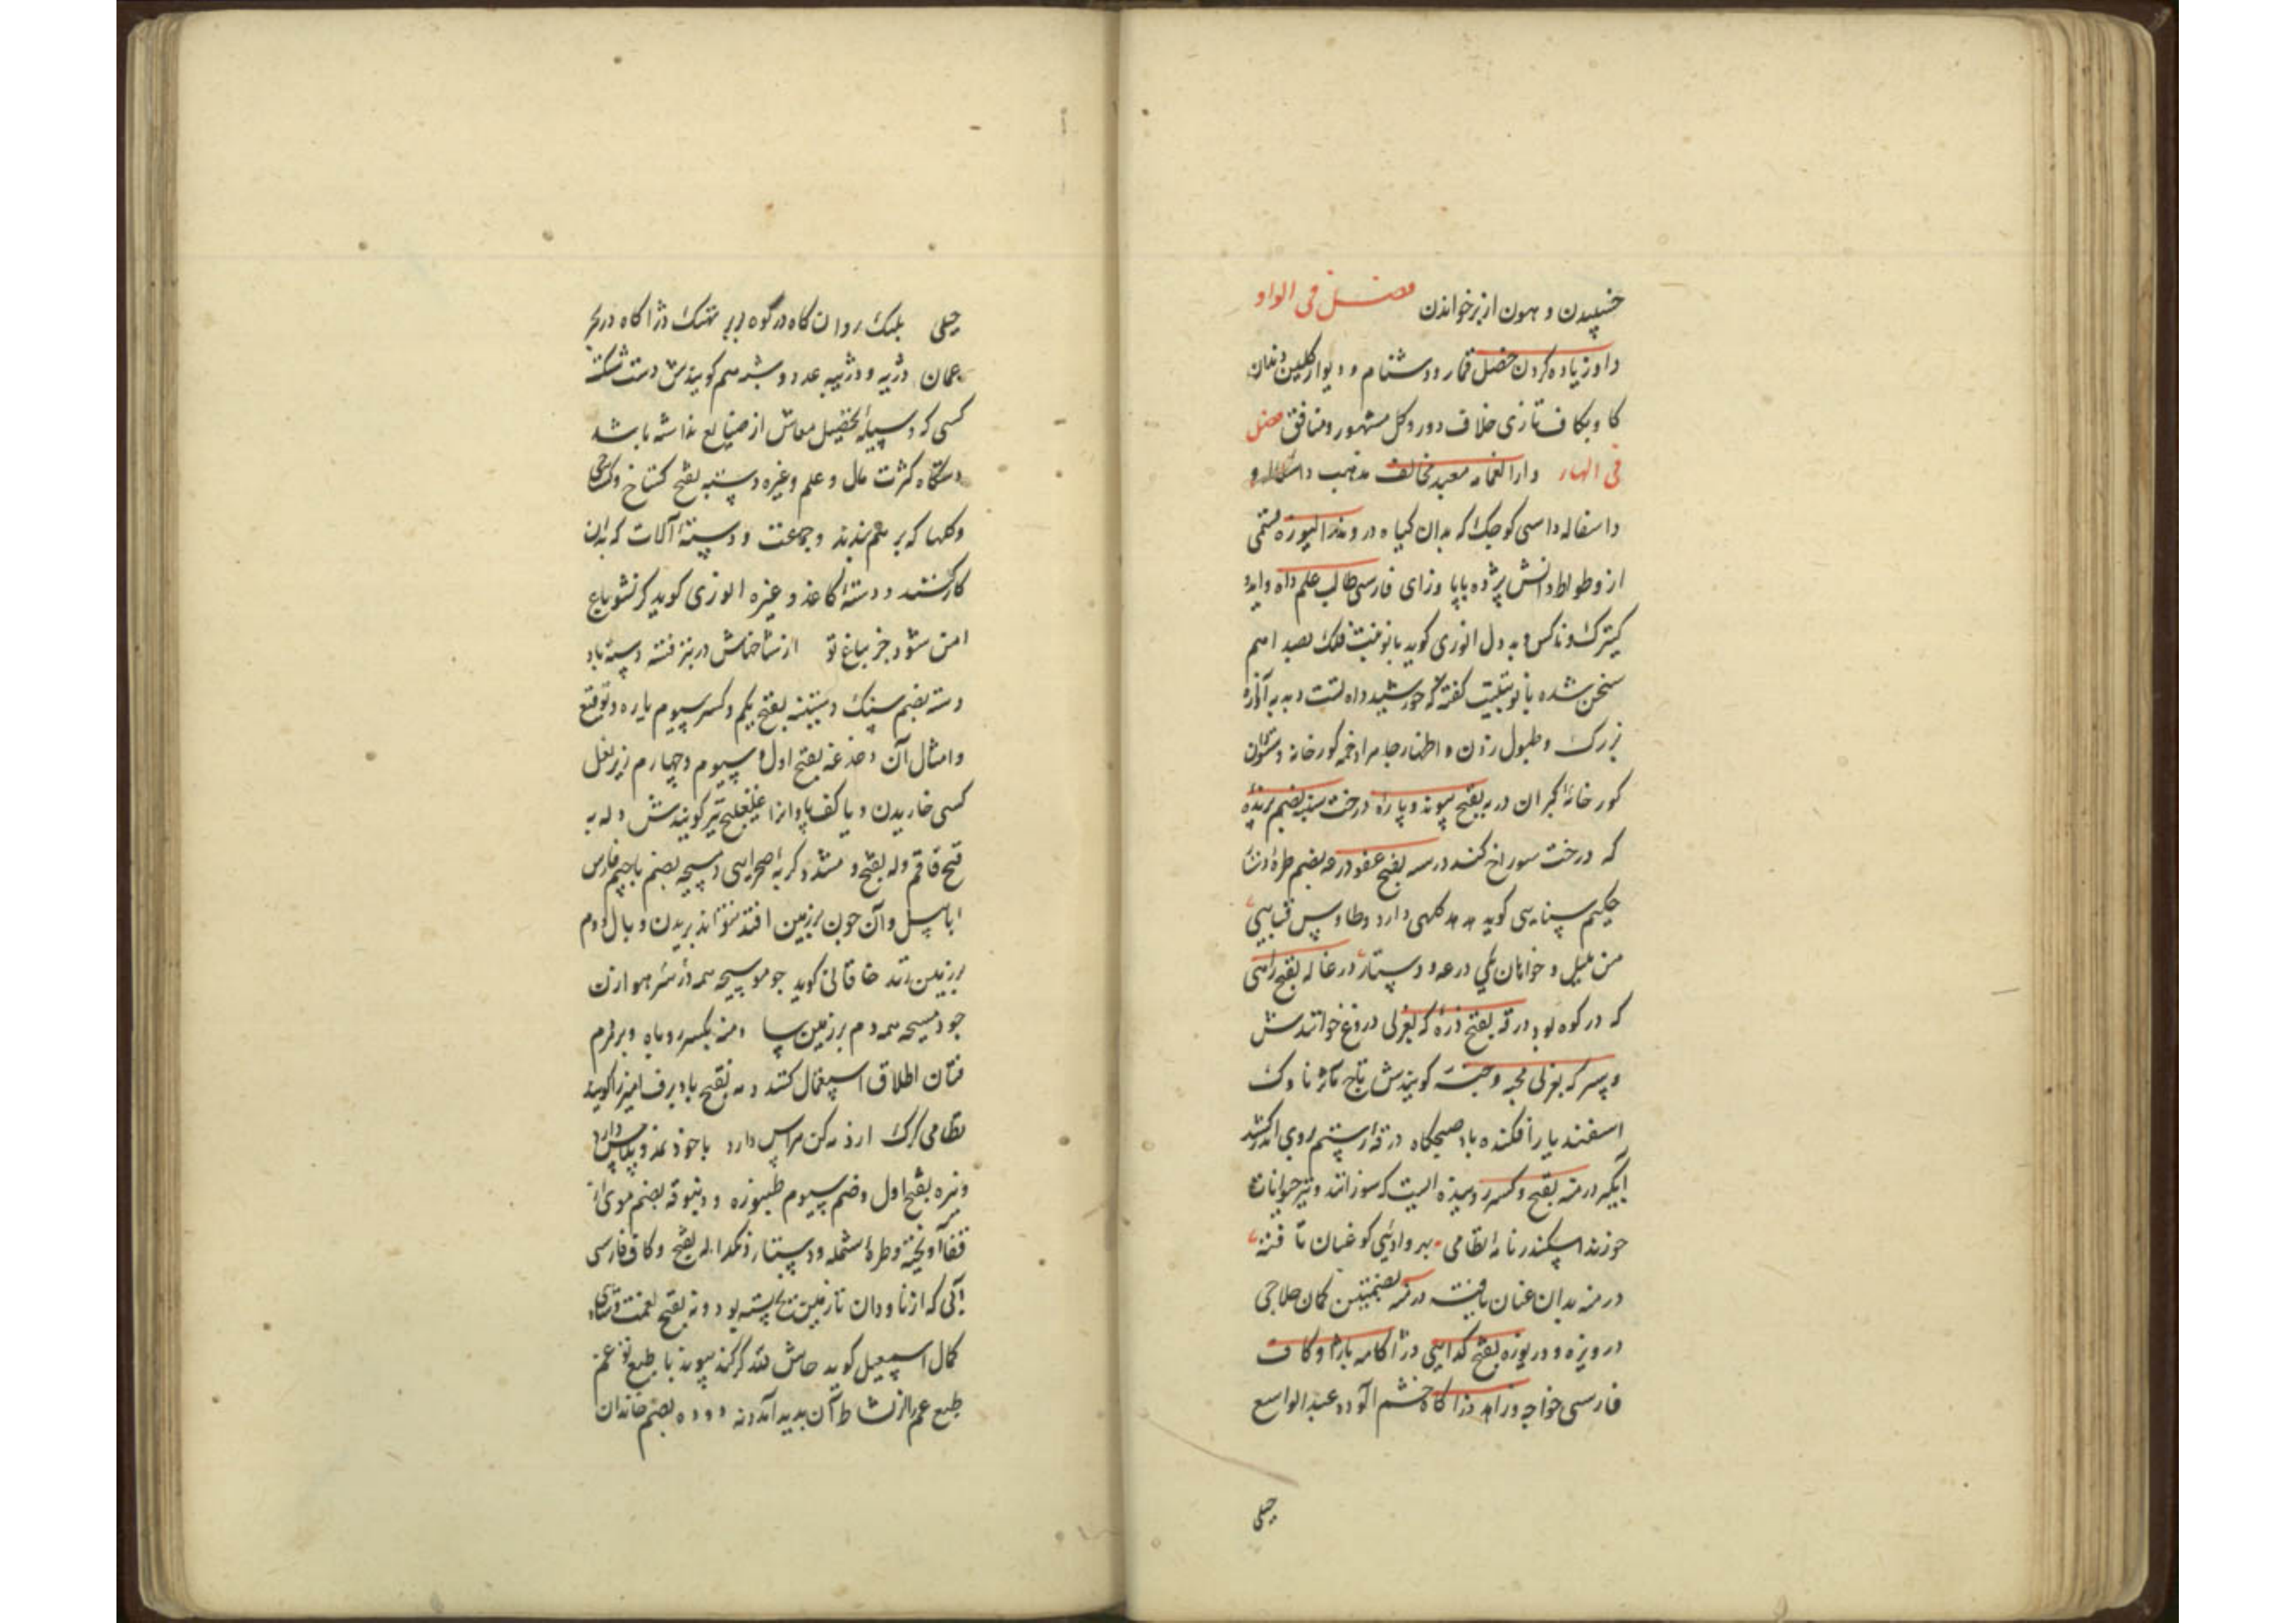 خسپیدن و همون از بر خواندن فصل فی الواو
داو زیاده کردن خصل قمار و دشنام و دیوار کلین دندان
کاو بکاف تازی خلاف دور و کل مشهور و منافق فصل
فی الهاء دارالغمامه معبد مخالف مذهب
داسغاله داسی کوچک که بدان کیاه دروند
از وطواط دانش پژوه بابا وزای فارسی طالب علم داه دایه
کنیزک و ناکس و ده دل انوری کوید بانوبت فلک بصد اهم
سخن شده با نوبتیت کفته که خورشید داه تست دبدبه آوازه
بزرک و طبول زدن و اظهار جاه مراد دخمه کورخانه
کور خانهٔ کبران دربه بفتح پیوند و پاره درخت سنبه بضم پرنده
که درخت سوراخ کند درسه بفتح عفو درعه بضم طره دنشا
حکیم سنایی کوید هدهد کلهی دارد و طاوس قبایی
من بلبل و خوانان یکی درعه و دستار درغاله بفتح راهی
که در کوه بود درقه بفتح ذره که بعربی دروغ خوانندش
و سپر که بعربی مجنه و جنه کویندش تاج ناوک
اسفندیار افکنده باد صبحکاه درقهٔ رستم بروی
آبکیر درمنه بفتح و کسر رومیده ایست که سوزانند و نیز حیوانات
خورند اسکندر نامهٔ نظامی بهر وادئی کو عنان تافته
درمنه بدان عنان یافته درنه بضمتین کمان حلاجی
درویزه و دریوزه بفتح کدایی دژاکامه بازا و کاف
فارسی خواجه و زاهد دژاکاه خشم آلوده عبدالواسع
جبلی
جبلی پلنک روان کاه در کوه بربر نهنک دژاکاه در بحر
عمان دژپه و دژپیه غدود و بشر هم کویندش دست شکسته
کسی که وسیلهٔ تحصیل معاش از صنایع نداشته باشد
دستکاه کثرت مال و علم و غیره دسته بفتح کستاخ و
و کلها که بر هم بندند و جمعت و دستهٔ آلات که بدان
کار کنند و دستهٔ کاغذ و غیره انوری کوید کر نشو باغ
امن شود جز بباغ تو از شاخهاش دربر فتنه دسته باد
دسته بضم سنک دستینه بفتح یکم و کسر سیوم یاره و توقیع
و امثال آن دغدغه بفتح اول و سیوم و چهارم زیر بغل
کسی خاریدن و یا کف پا و انرا غلغلیج نیز کویندش دله به
فتح قاقم دله بفتح و مشدد کربه صحرایی دمسیجه بضم با جیم فارسی
ابابیل و آن چون بر زمین افتد نتواند بریدن و بال و دم
بر زمین زند خاقانی کوید چو موسیجه همه در سر هوا زن
چو دمسیجه همه دم بر زمین سا دمنه بکسر روباه و بر مردم
فتان اطلاق استعمال کنند دمه بفتح باد برف امیز را کویند
نظامی کرک از دمه کن هراس دارد با خود نمد و پلاس دارد
دنبره بفتح اول و ضم سیوم طنبوره و دنبوقه بضم موی از
قفا آویخته و طرهٔ شمله و دستار دنکداله بفتح و کاف فارسی
آبی که از ناودان تا زمین یخ بسته بود دنه بفتح نعمت
کمال اسمعیل کوید حاش لله کر کند پیوند با طبع تو غم
طبع غم را از نشاط آن پدید آید دنه دوده بضم خاندان